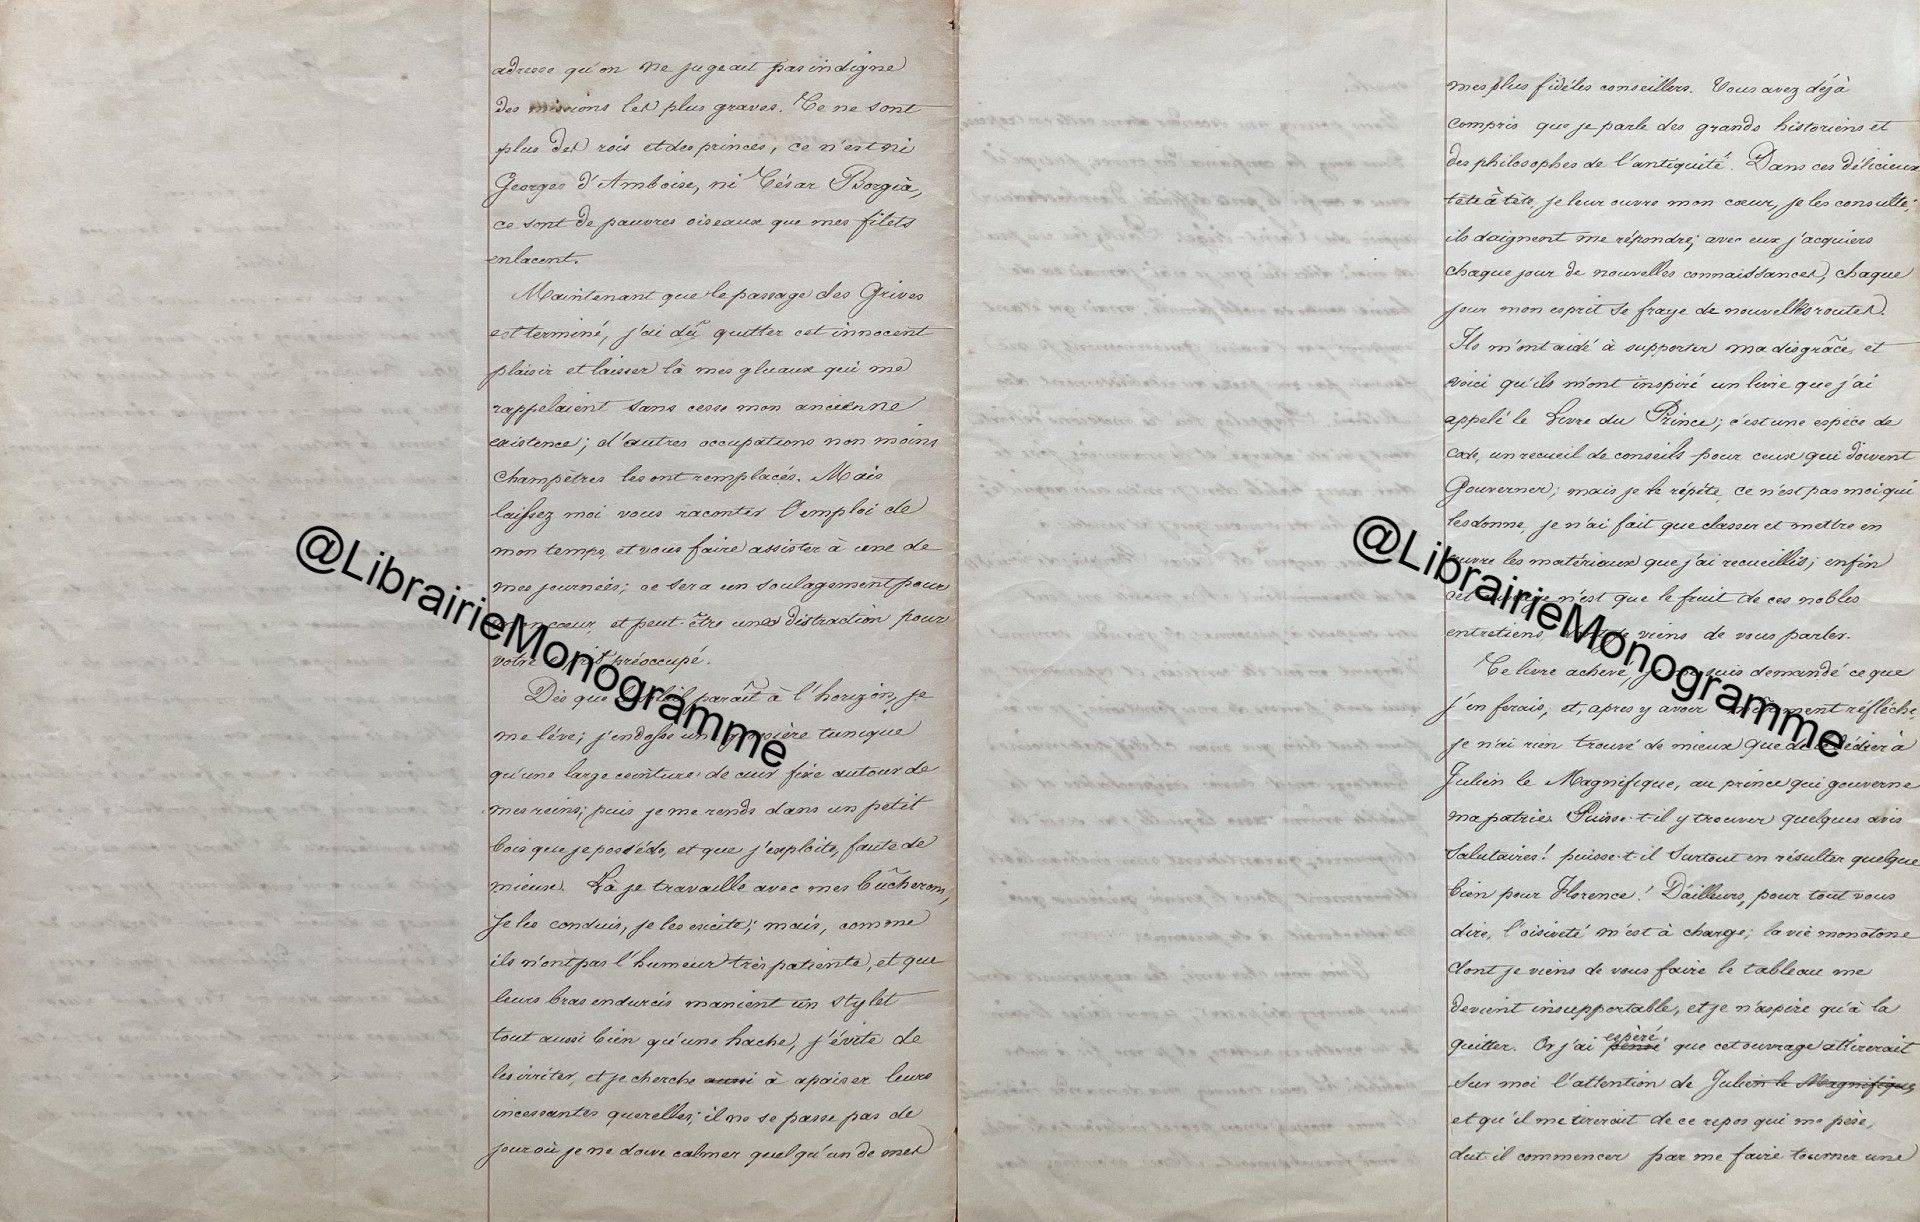 adresse qu'on ne jugeait pas indigne
des missions les plus graves. Ce ne sont
plus des rois et des princes, ce n'est ni
Georges d'Amboise, ni César Borgia,
ce sont de pauvres oiseaux que mes filets
enlacent.
Maintenant que le passage des Grives
est terminé, j'ai dû quitter cet innocent
plaisir et laisser là mes gluaux qui me
rappelaient sans cesse mon ancienne
existence; d'autres occupations non moins
champêtres les ont remplacés. Mais
laissez moi vous raconter l'emploi de
mon temps, et vous faire assister à une de
mes journées; ce sera un soulagement pour
mon cœur, et peut-être une distraction pour
votre esprit préoccupé.
Dès que paraît à l'horizon, je
me lève; j'endosse une grossière tunique
qu'une large ceinture de cuir fixe autour de
mes reins; puis je me rends dans un petit
bois que je possède, et que j'exploite, faute de
mieux. Là je travaille avec mes bûcherons,
je les conduis, je les excite; mais, comme
ils n'ont pas l'humeur très patiente, et que
leurs bras endurcis manient un stylet
tout aussi bien qu'une hache, j'évite de
les irriter, et je cherche aussi à apaiser leurs
incessantes querelles; il ne se passe pas de
jour où je ne doive calmer quelqu'un de mes
mes plus fidèles conseillers. Vous avez déjà
compris que je parle des grands historiens et
des philosophes de l'antiquité. Dans ces délicieux
tête à tête, je leur ouvre mon cœur, je les consulte;
ils daignent me répondre; avec eux j'acquiers
chaque jour de nouvelles connaissances, chaque
jour mon esprit se fraye de nouvelles routes.
Ils m'ont aidé à supporter ma disgrâce, et
voici qu'ils m'ont inspiré un livre que j'ai
appelé le Livre du Prince; c'est une espèce de
code, un recueil de conseils pour ceux qui doivent
Gouverner; mais je le répète, ce n'est pas moi qui
les donne, je n'ai fait que classer et mettre en
œuvre les matériaux que j'ai recueillis; enfin
cet ouvrage n'est que le fruit de ces nobles
entretiens dont je viens de vous parler.
Ce livre achevé, je me suis demandé ce que
j'en ferais, et, après y avoir mûrement réfléchi,
je n'ai rien trouvé de mieux que de le dédier à
Julien le Magnifique, au prince qui gouverne
ma patrie. Puisse-t-il y trouver quelques avis
salutaires! puisse-t-il surtout en résulter quelque
bien pour Florence! D'ailleurs, pour tout vous
dire, l'oisiveté m'est à charge; la vie monotone
dont je viens de vous faire le tableau me
devient insupportable, et je n'aspire qu'à la
espéré
quitter. Or j'ai pensé que cet ouvrage attirerait
sur moi l'attention de Julien le Magnifique,
et qu'il me tirerait de ce repos qui me pèse,
dut-il commencer par me faire tourner une
@LibrairieMonogramme
@LibrairieMonogramme